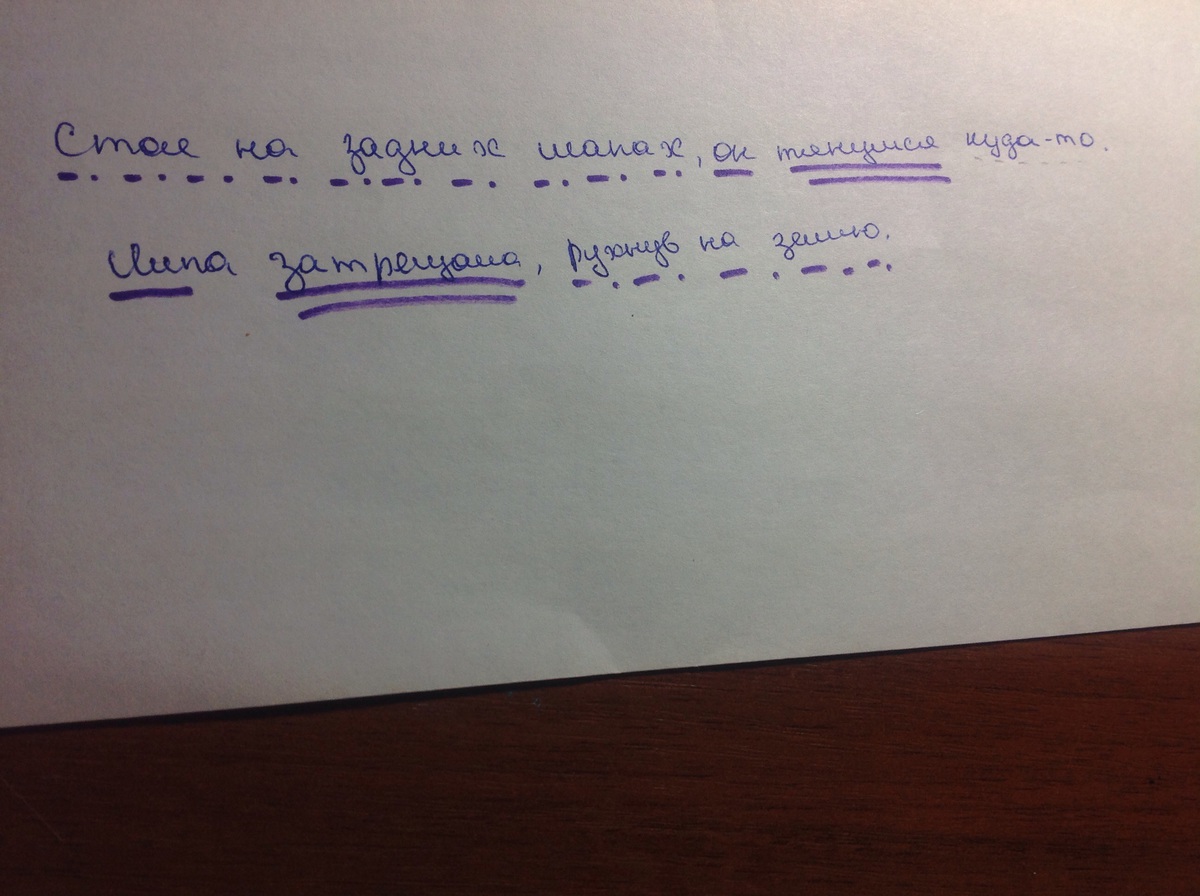 Стоя на задних лапах, он тянулся куда-то.
Липа затрещала, рухнув на землю.